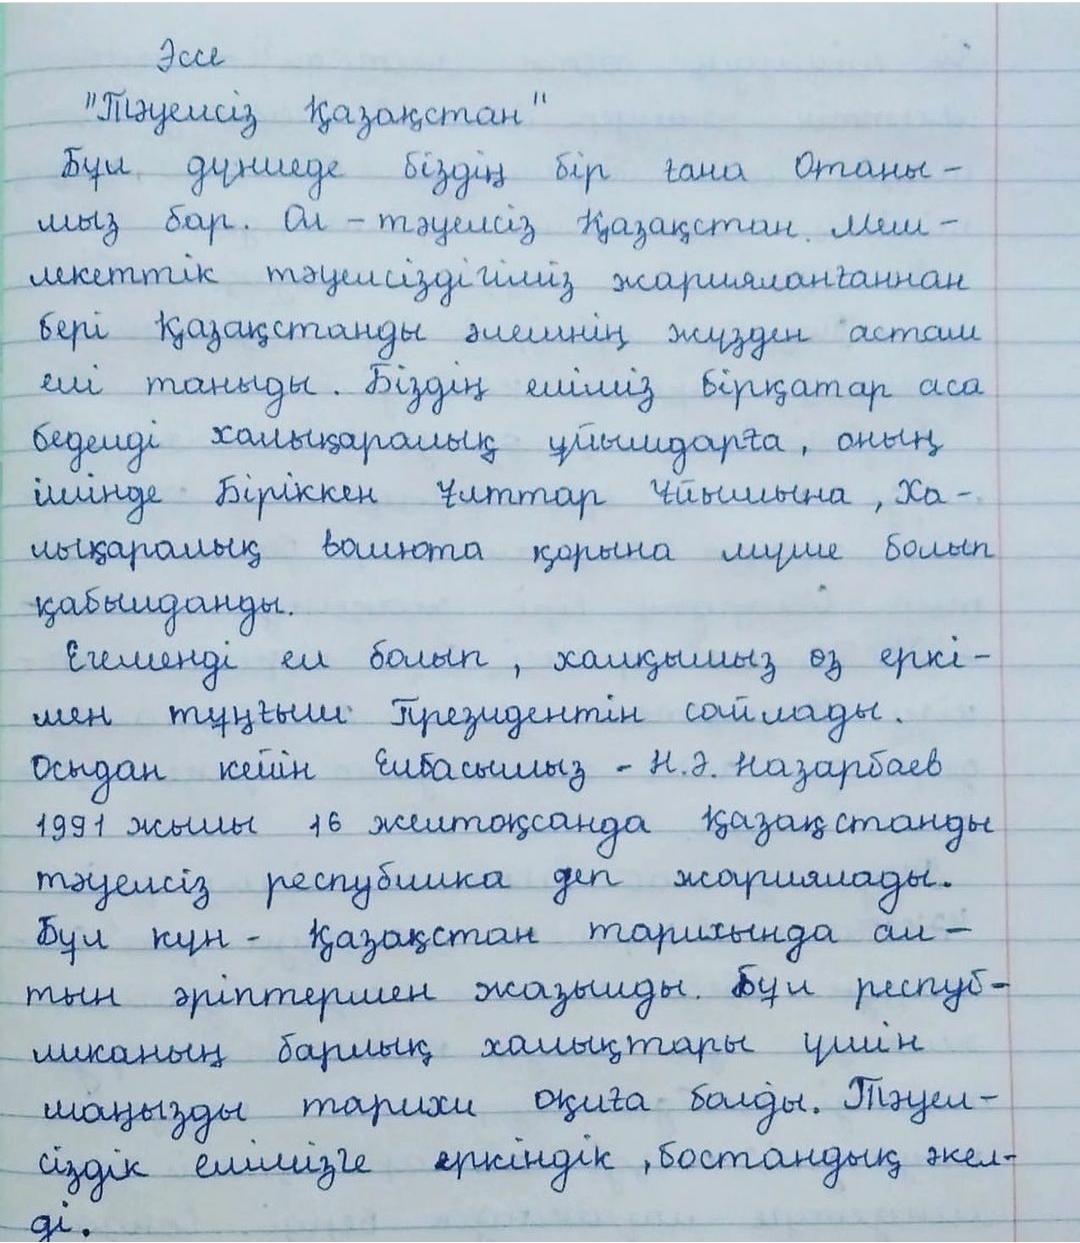 Эссе
"Тәуелсіз Қазақстан"
Бұл дүниеде біздің бір ғана Отаны-
мыз бар. Ол - тәуелсіз Қазақстан. Мем-
лекеттік тәуелсіздігіміз жарияланғаннан
бері Қазақстанды әлемнің жүзден астам
елі таныды. Біздің еліміз бірқатар аса
беделді халықаралық ұйымдарға, оның
ішінде Біріккен Ұлттар Ұйымына, Ха-
лықаралық валюта қорына мүше болып
қабылданды.
Егеменді ел болып, халқымыз өз еркі-
мен тұңғыш Президентін сайлады.
Осыдан кейін Елбасымыз - Н.Ә. Назарбаев
1991 жылы 16 желтоқсанда Қазақстанды
тәуелсіз республика деп жариялады.
Бұл күн - Қазақстан тарихында ал-
тын әріптермен жазылды. Бұл респуб-
ликаның барлық халықтары үшін
маңызды тарихи оқиға болды. Тәуел-
сіздік елімізге еркіндік, бостандық әкел-
ді.